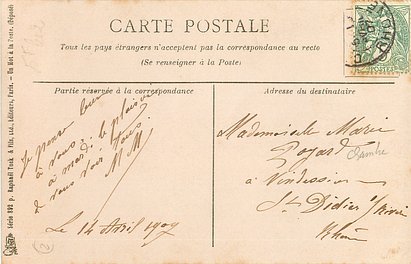 CARTE POSTALE
Tous les pays étrangers n'acceptent pas la correspondance au recto
(Se renseigner à la Poste)
Partie réservée à la correspondance
Adresse du destinataire
Série 892 p. Raphaël Tuck & fils, Ltd, Éditeurs, Paris. - Un Mot à la Poste. (Déposé)
Je pense
à vous
à mardi le plaisir
de vous voir tous.
M M
Le 14 Avril 1907
Mademoiselle Marie
à
St Didier s/
Rhône